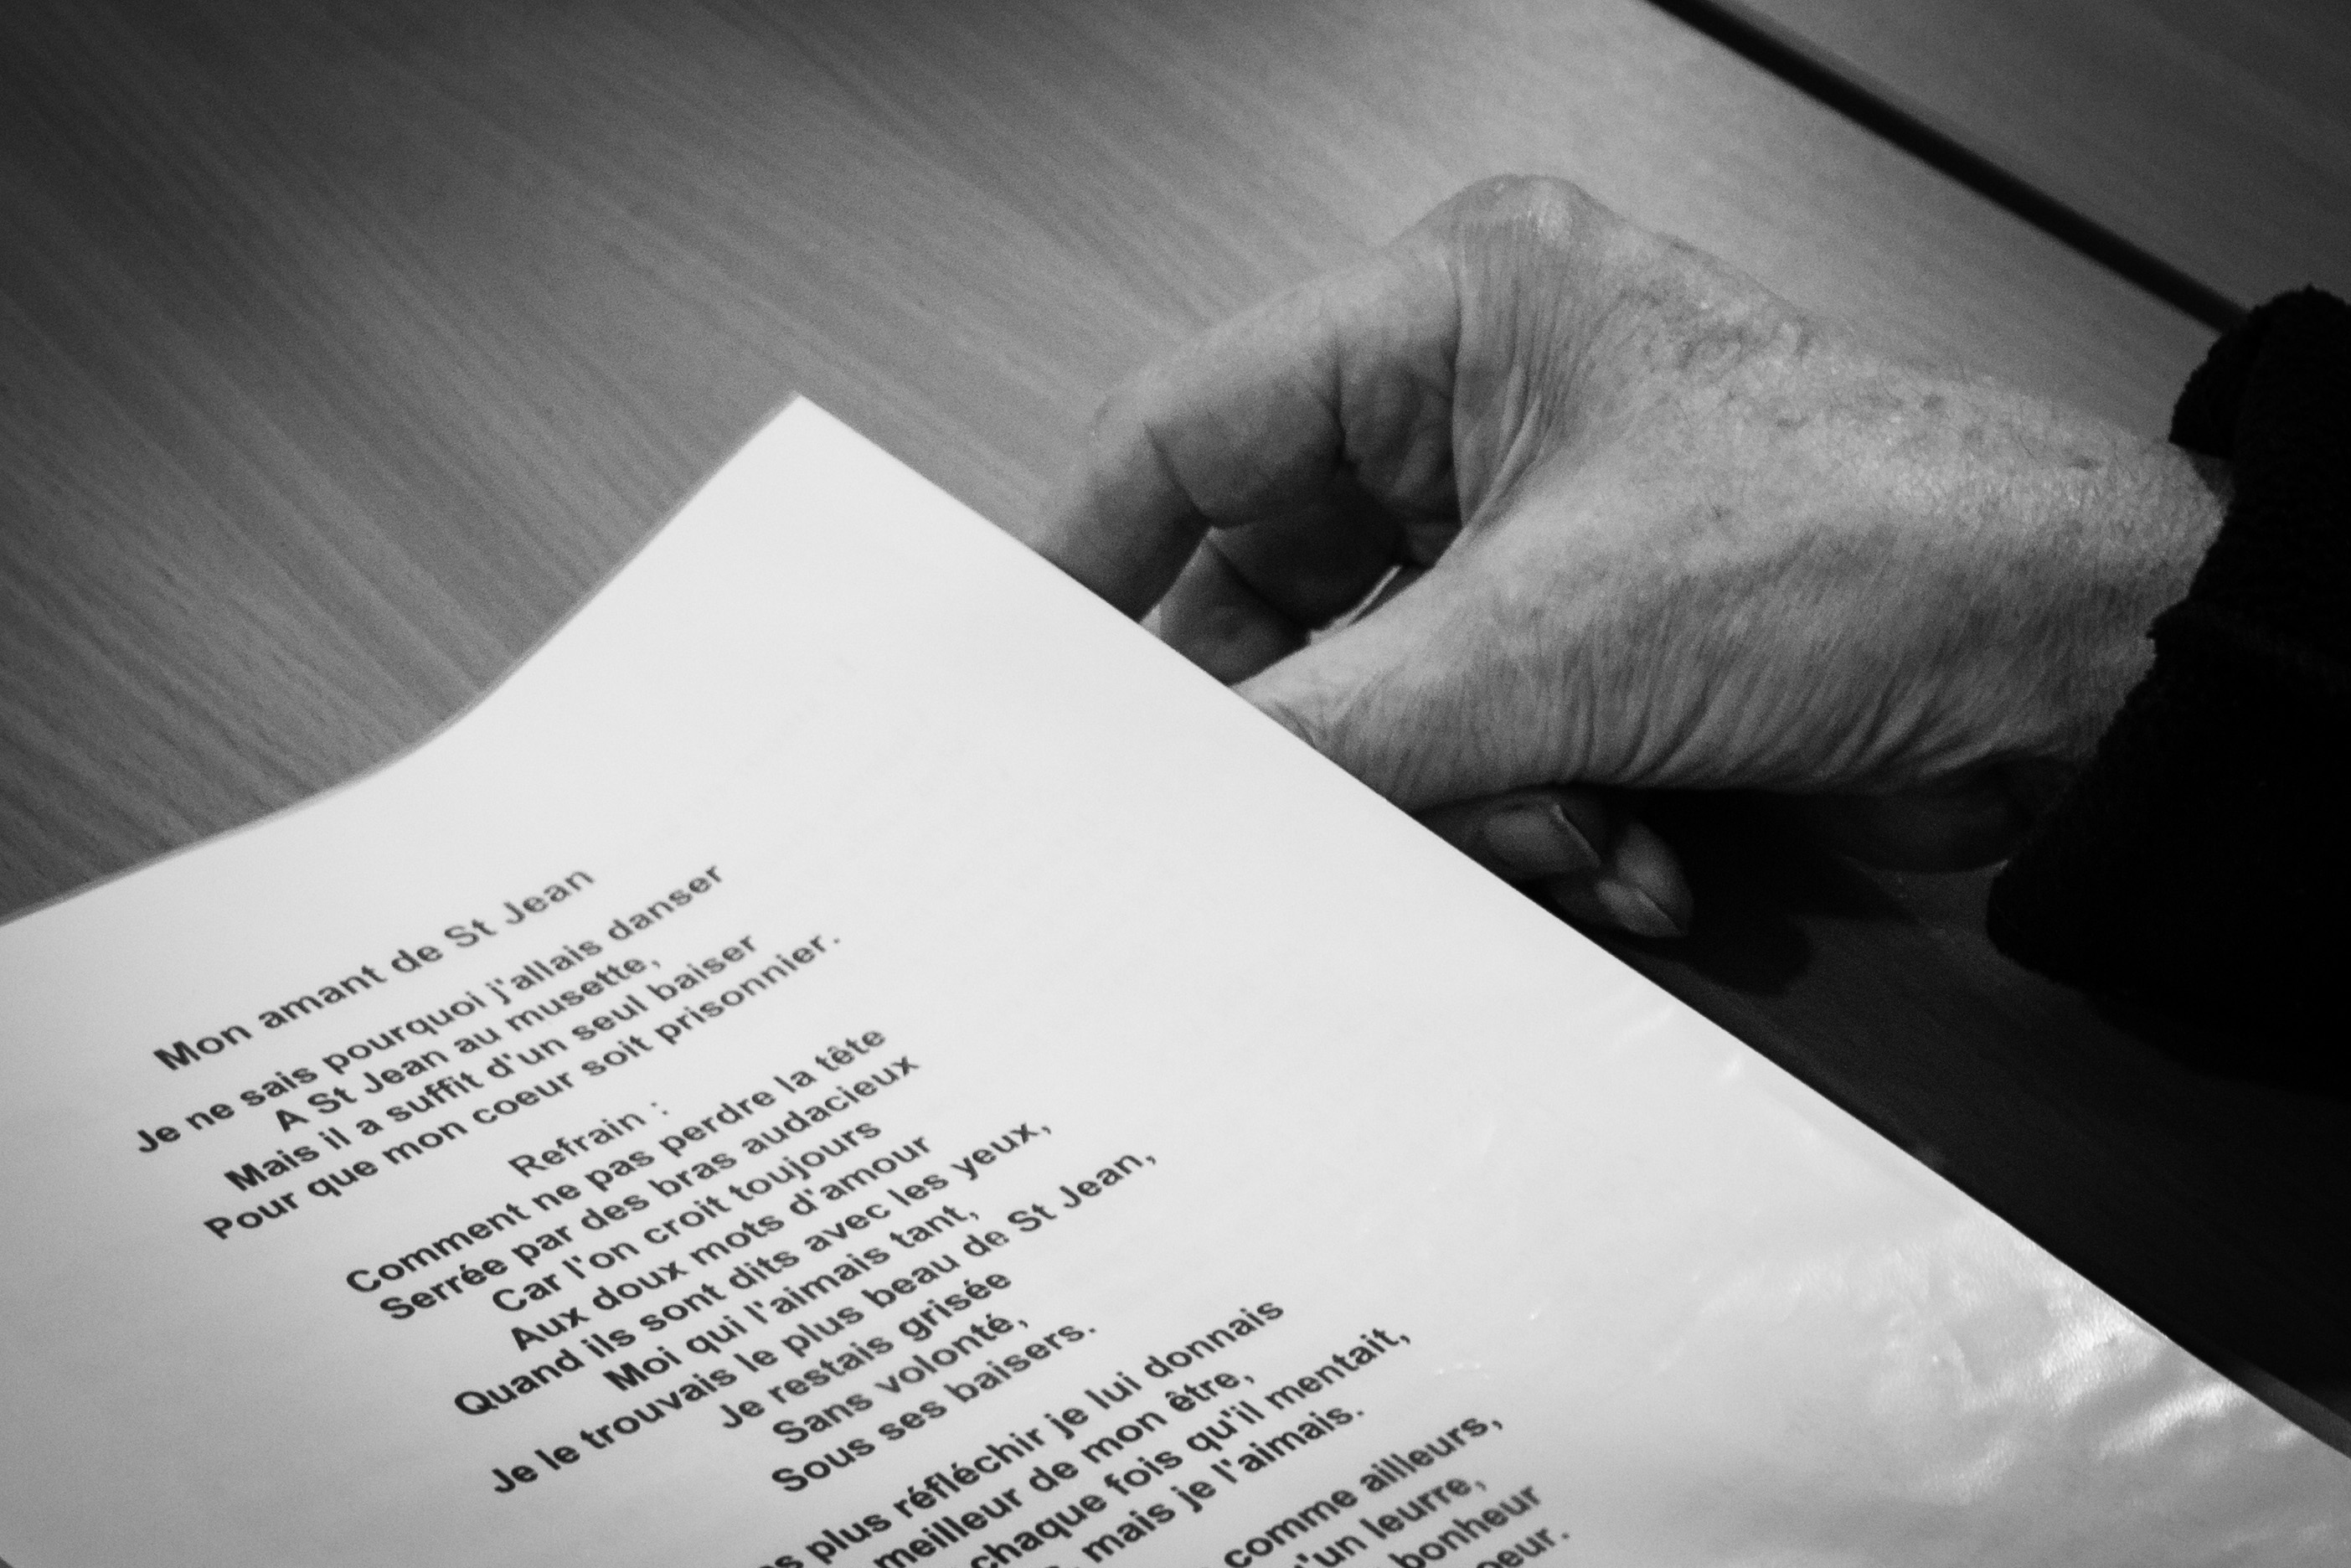 Mon amant de St Jean
Je ne sais pourquoi j'allais danser
A St Jean au musette,
Mais il a suffit d'un seul baiser
Pour que mon coeur soit prisonnier.
Refrain :
Comment ne pas perdre la tête
Serrée par des bras audacieux
Car l'on croit toujours
Aux doux mots d'amour
Quand ils sont dits avec les yeux,
Moi qui l'aimais tant,
Je le trouvais le plus beau de St Jean,
Je restais grisée
Sans volonté,
Sous ses baisers.
plus réfléchir je lui donnais
meilleur de mon être,
chaque fois qu'il mentait,
mais je l'aimais.
comme ailleurs,
leurre,
bonheur